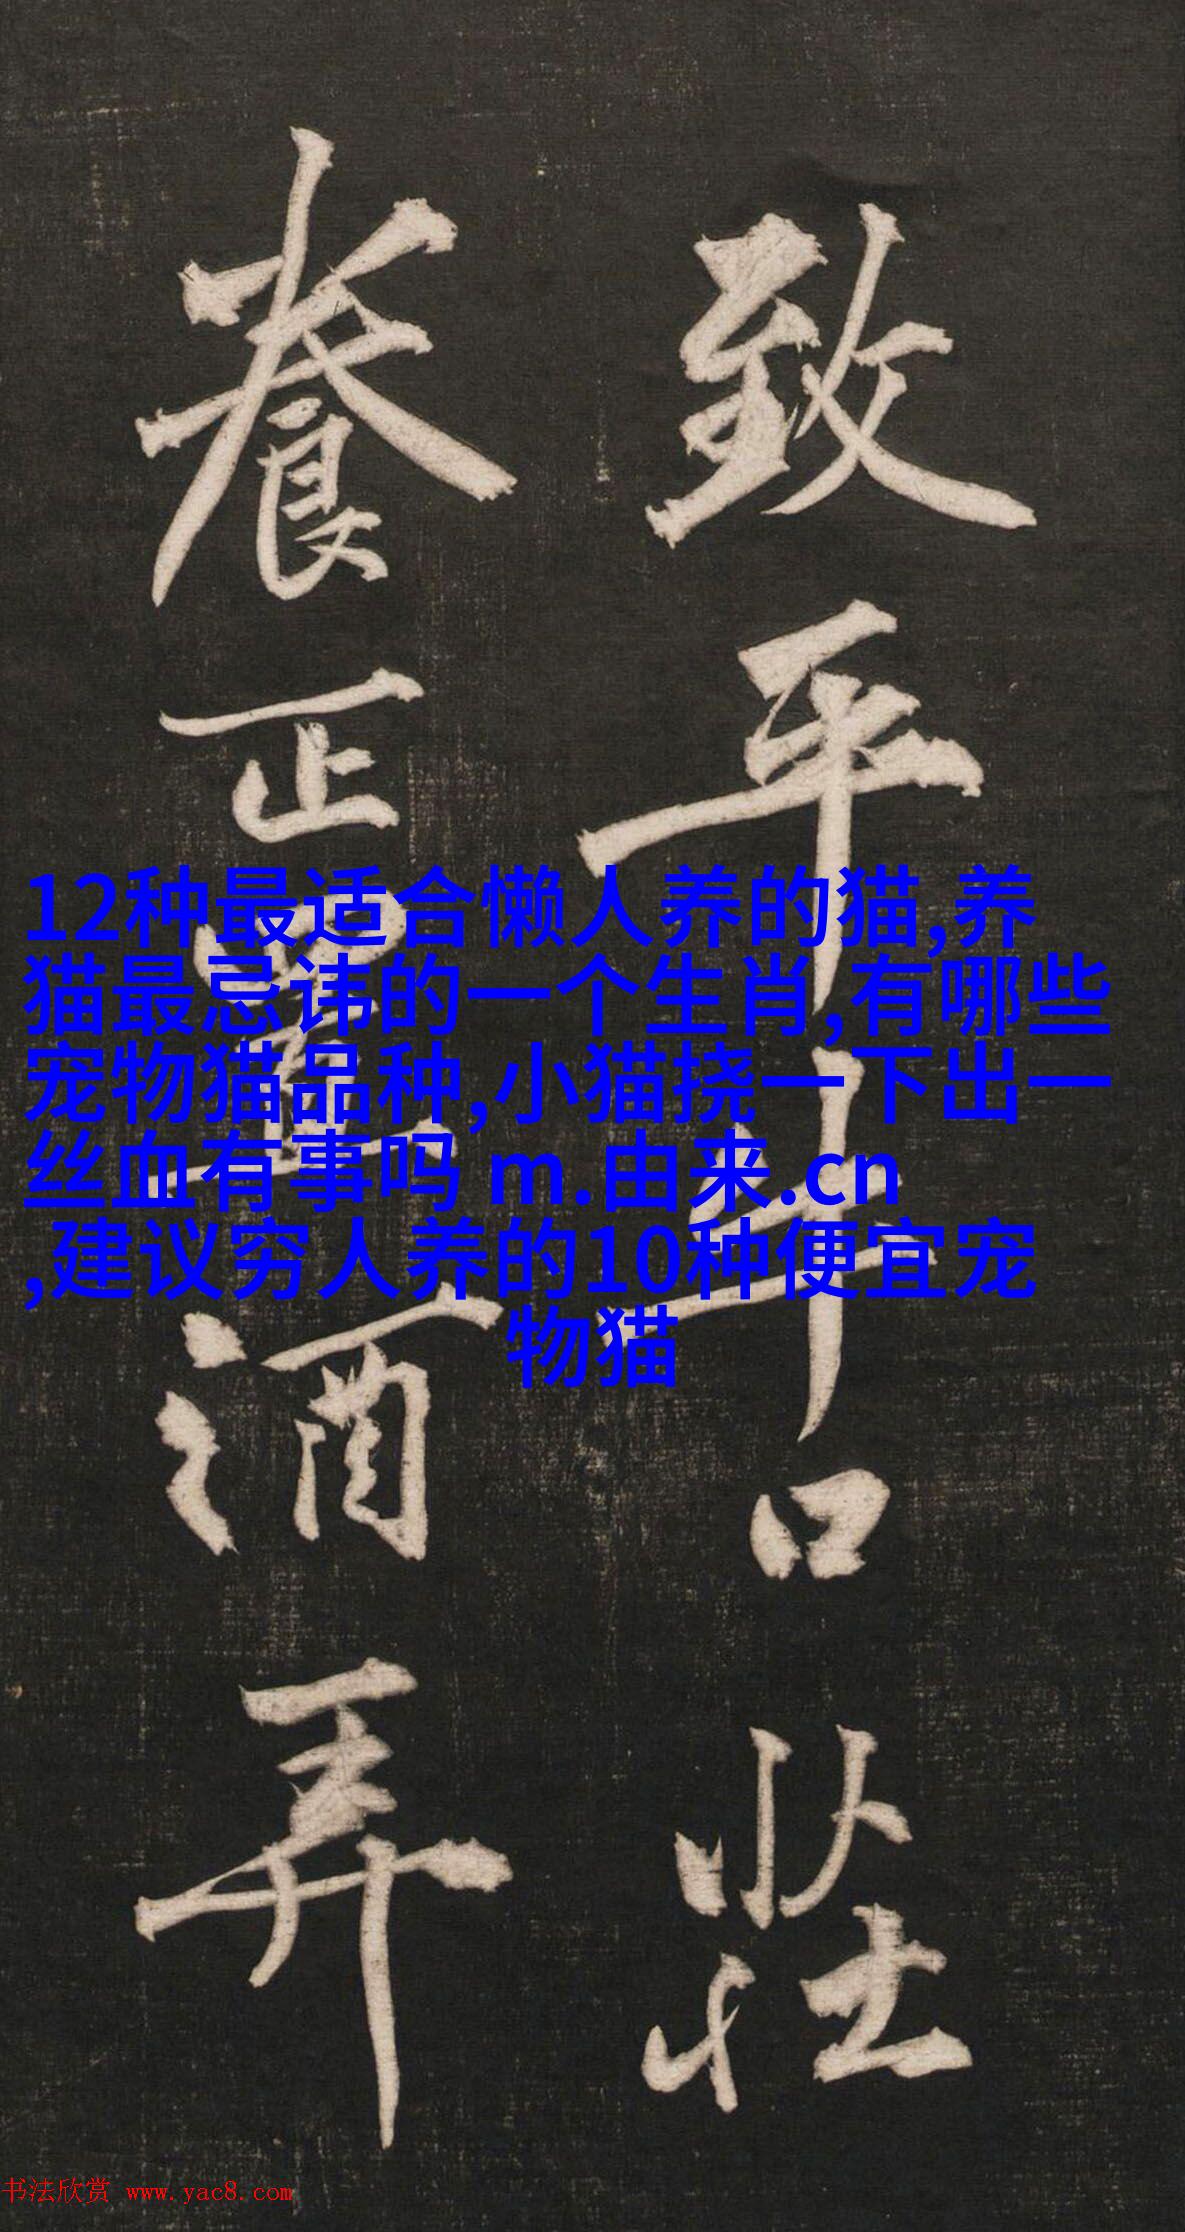 致平牛口莊
養正置酒弄
12种最适合懒人养的猫,养
猫最忌讳的一个生肖,有哪些
宠物猫品种,小猫挠一下出一
丝血有事吗 m.由来.cn
,建议穷人养的10种便宜宠
物猫
书法欣赏 www.yac8.com